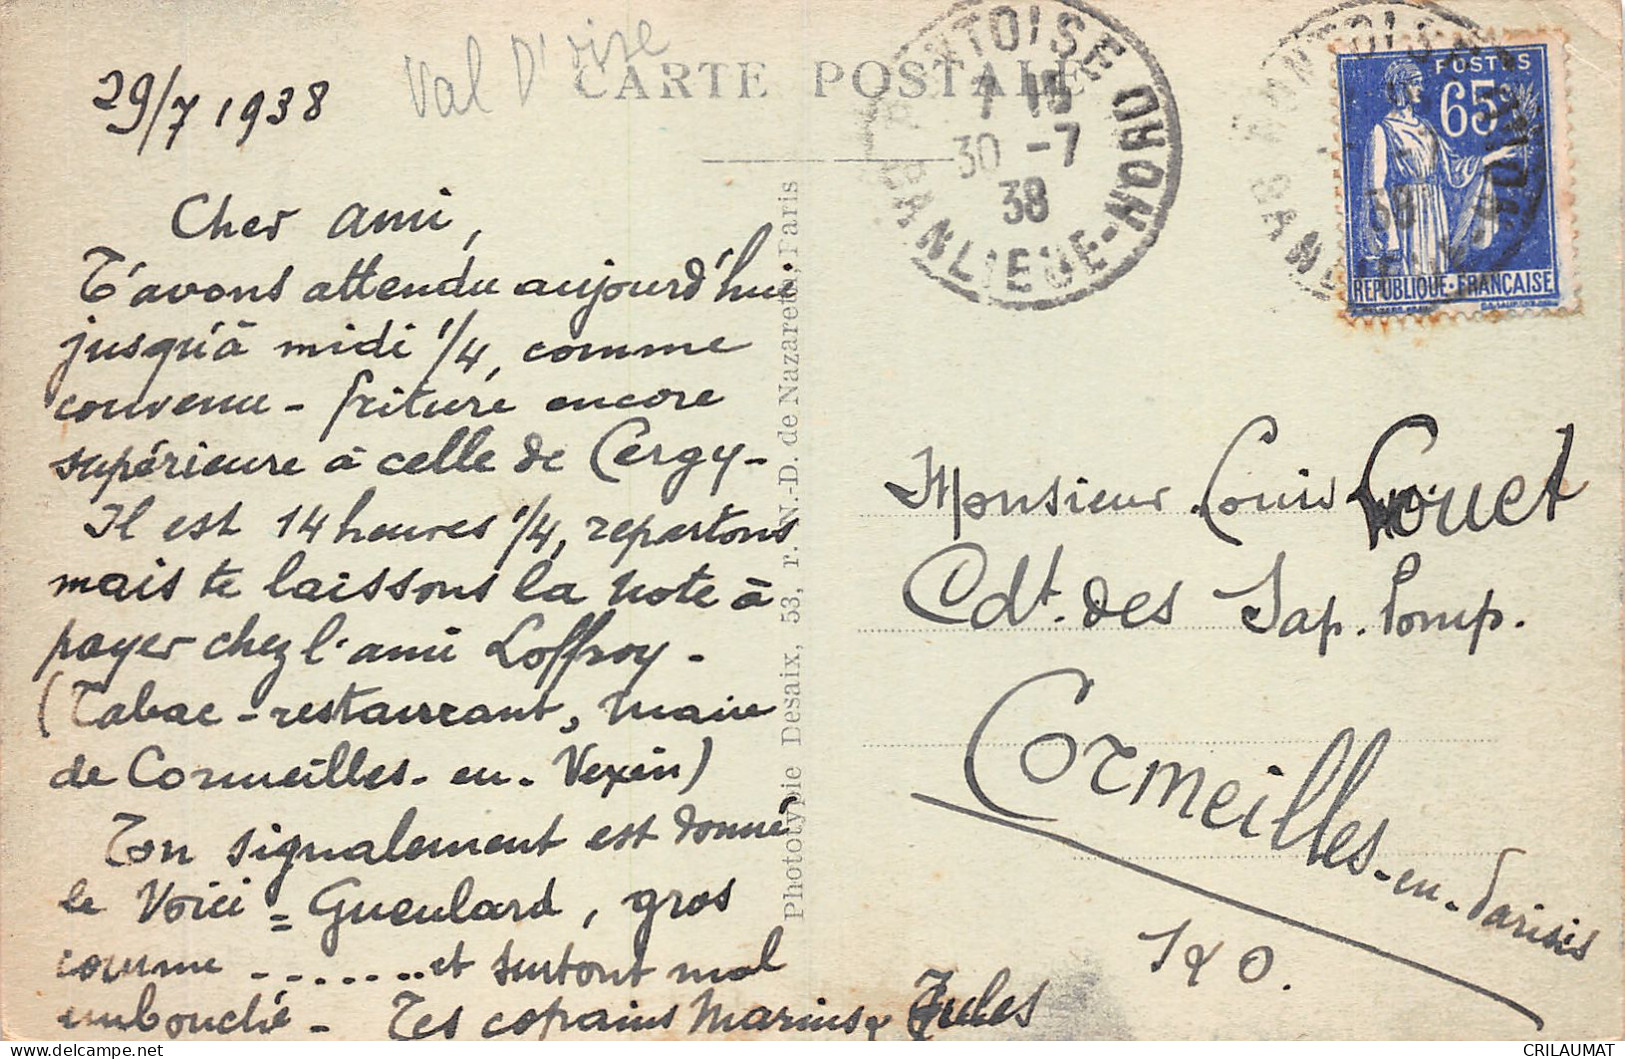 Val D'oise
CARTE POSTALE
29/7 1938
Cher ami,
T'avons attendu aujourd'hui
jusqu'à midi 1/4, comme
convenu - friture encore
supérieure à celle de Cergy -
Il est 14 heures 1/4, repartons
mais te laissons la note à
payer chez l'ami Loffroy -
(Tabac - restaurant, maire
de Cormeilles-en-Vexin)
Ton signalement est donné
le voici = Gueulard, gros
comme - - - - - - - et surtout mal
embouché - Tes copains Marius & Jules
Phototypie Desaix, 53, r. N.-D. de Nazareth, Paris
PONTOISE QUON
7 15
30 -7
38
BANLIEUE-NORD
POSTES
65c
REPUBLIQUE·FRANÇAISE
38
Monsieur Louis Louet
Cdt. des Sap. Pomp.
Cormeilles-en-Parisis
S & O.
CRILAUMAT